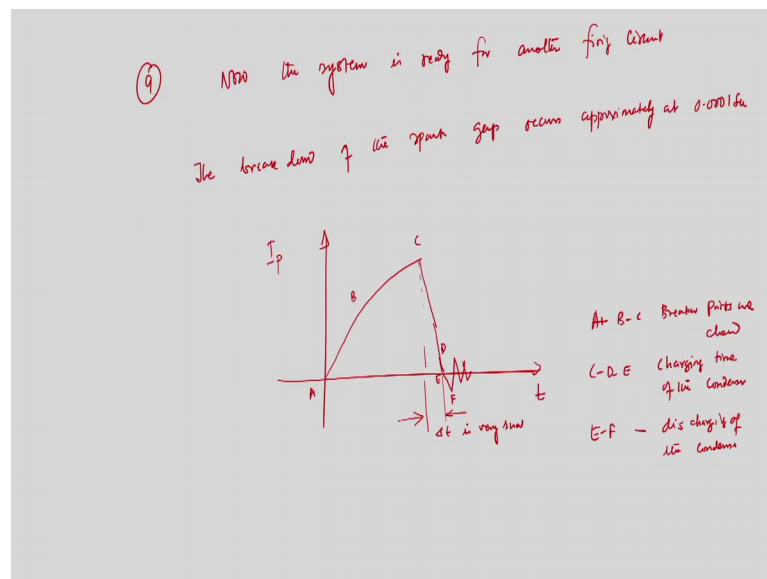 9 Now the system is ready for another firing circuit
The break down of the spark gap occurs approximately at 0.0001 Sec
I-P
C
B
A
D
E
F
t
Δt is very small
A+ B-C Breaker points are
closed
C-D E Charging time
of the condenser
E-F - discharging of
the condenser